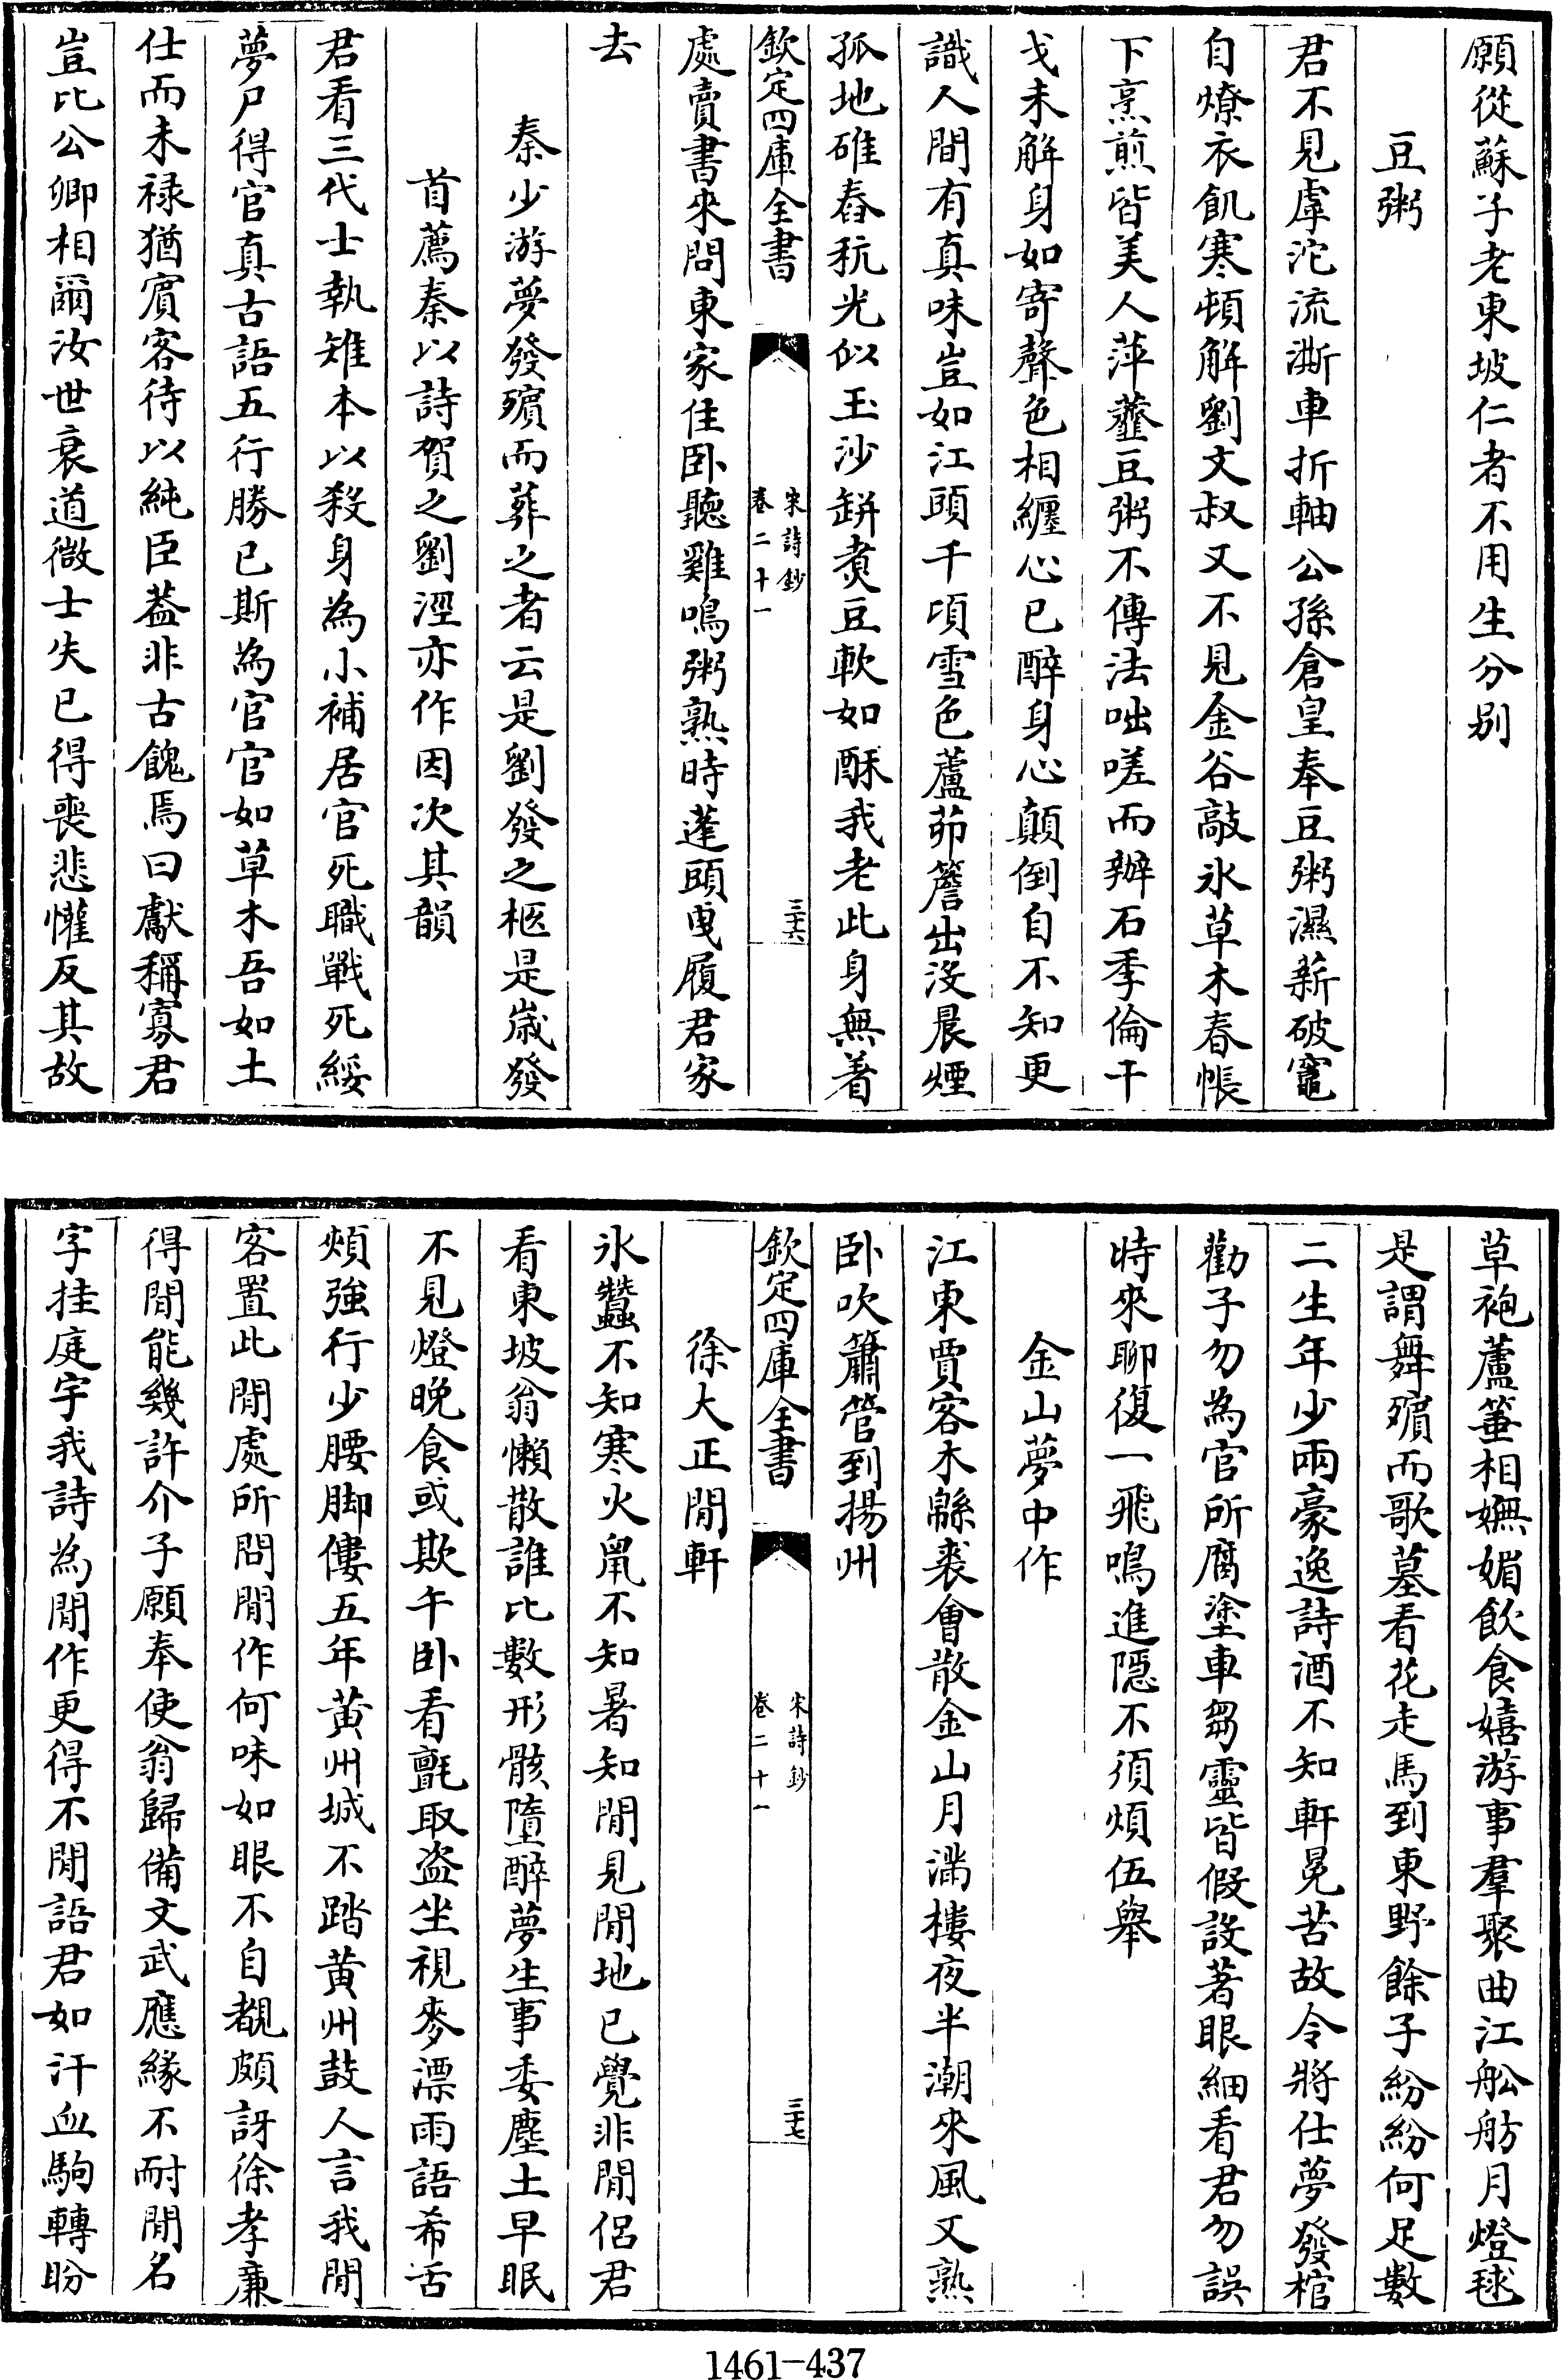 願從蘇子老東坡仁者不用生分别
豆粥
君不見虖沱流澌車折軸公孫倉皇奉豆粥濕薪破竈
自燎衣飢寒頓解劉文叔又不見金谷敲氷草木春帳
下烹煎皆美人萍虀豆粥不傳法咄嗟而辦石季倫干
戈未解身如寄聲色相纏心已醉身心顛倒自不知更
識人間有真味豈如江頭千頃雪色蘆茆簷出沒晨煙
孤地碓舂秔光似玉沙缾煮豆軟如酥我老此身無着
欽定四庫全書
宋詩鈔
卷二十一
三六
處賣書來問東家住卧聽雞鳴粥熟時蓬頭曳履君家
去
秦少游夢發殯而葬之者云是劉發之柩是歲發
首薦秦以詩賀之劉涇亦作因次其韻
君看三代士執雉本以殺身為小補居官死職戰死綏
夢尸得官真古語五行勝已斯為官官如草木吾如土
仕而未禄猶賓客待以純臣葢非古餽焉曰獻稱寡君
豈比公卿相爾汝世衰道微士失已得喪悲懽反其故
草袍蘆箠相嫵媚飲食嬉游事羣聚曲江舩舫月燈毬
是謂舞殯而歌墓看花走馬到東野餘子紛紛何足數
二生年少兩豪逸詩酒不知軒冕苦故令將仕夢發棺
勸子勿為官所腐塗車芻靈皆假設著眼細看君勿誤
時來聊復一飛鳴進隠不須煩伍舉
金山夢中作
江東賈客木緜裘會散金山月滿樓夜半潮來風又熟
卧吹簫管到揚州
欽定四庫全書
宋詩鈔
卷二十一
三七
徐大正閒軒
氷蠶不知寒火鼠不知暑知閒見閒地已覺非閒侶君
看東坡翁懶散誰比數形骸墮醉夢生事委塵土早眠
不見燈晚食或欺午卧看氈取盗坐視麥漂雨語希舌
頰強行少腰脚僂五年黄州城不踏黄州鼓人言我閒
客置此閒處所問閒作何味如眼不自覩頗訝徐孝廉
得閒能幾許介子願奉使翁歸備文武應緣不耐閒名
字挂庭宇我詩為閒作更得不閒語君如汗血駒轉盼
1461-437